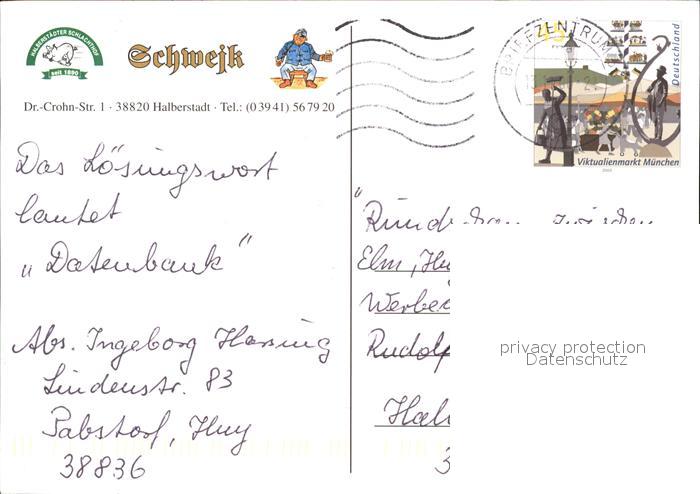 HALBERSTÄDTER SCHLACHTHOF
seit 1890
Schwejk
Dr.-Crohn-Str. 1 · 38820 Halberstadt · Tel.: (0 39 41) 56 79 20
BRIEFZENTRUM
Deutschland
Viktualienmarkt München
2003
Das Lösungswort
lautet
„Datenbank"
Abs. Ingeborg
Lindenstr. 83
Pabstorf, Huy
38836
Elm,
Rudolf
privacy protection
Datenschutz